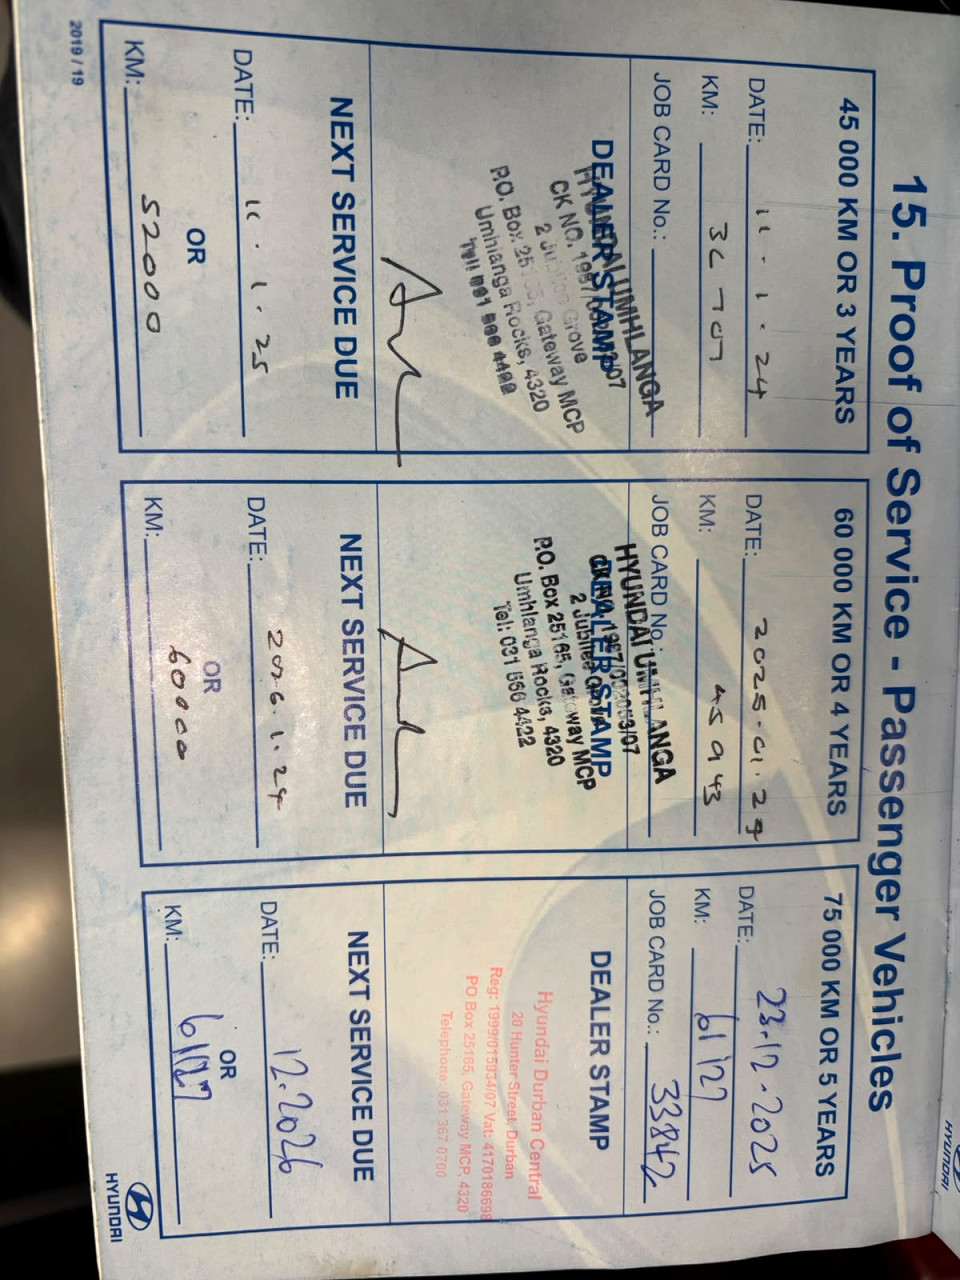 15. Proof of Service - Passenger Vehicles
45 000 KM OR 3 YEARS
DATE: 11.1.24
KM: 36 707
JOB CARD No.:
DEALER STAMP
HYUNDAI UMHLANGA
CK NO. 1987/002053/07
2 Jubilee Grove
P.O. Box 25165, Gateway MCP
Umhlanga Rocks, 4320
Tel: 031 566 4422
NEXT SERVICE DUE
DATE: 11.1.25
OR
KM: 52000
60 000 KM OR 4 YEARS
DATE: 2025.01.29
KM: 45 943
JOB CARD No.:
DEALER STAMP
HYUNDAI UMHLANGA
CK NO. 1987/002053/07
2 Jubilee Grove
P.O. Box 25165, Gateway MCP
Umhlanga Rocks, 4320
Tel: 031 566 4422
NEXT SERVICE DUE
DATE: 2026.1.29
OR
KM: 60000
75 000 KM OR 5 YEARS
DATE: 23.12.2025
KM: 61127
JOB CARD No.: 33842
DEALER STAMP
Hyundai Durban Central
20 Hunter Street, Durban
Reg: 1999/015934/07 Vat: 4170186698
PO Box 25165, Gateway MCP, 4320
Telephone: 031 367 0700
NEXT SERVICE DUE
DATE: 12.2026
OR
KM:
2019 / 19
HYUNDAI
HYUNDAI